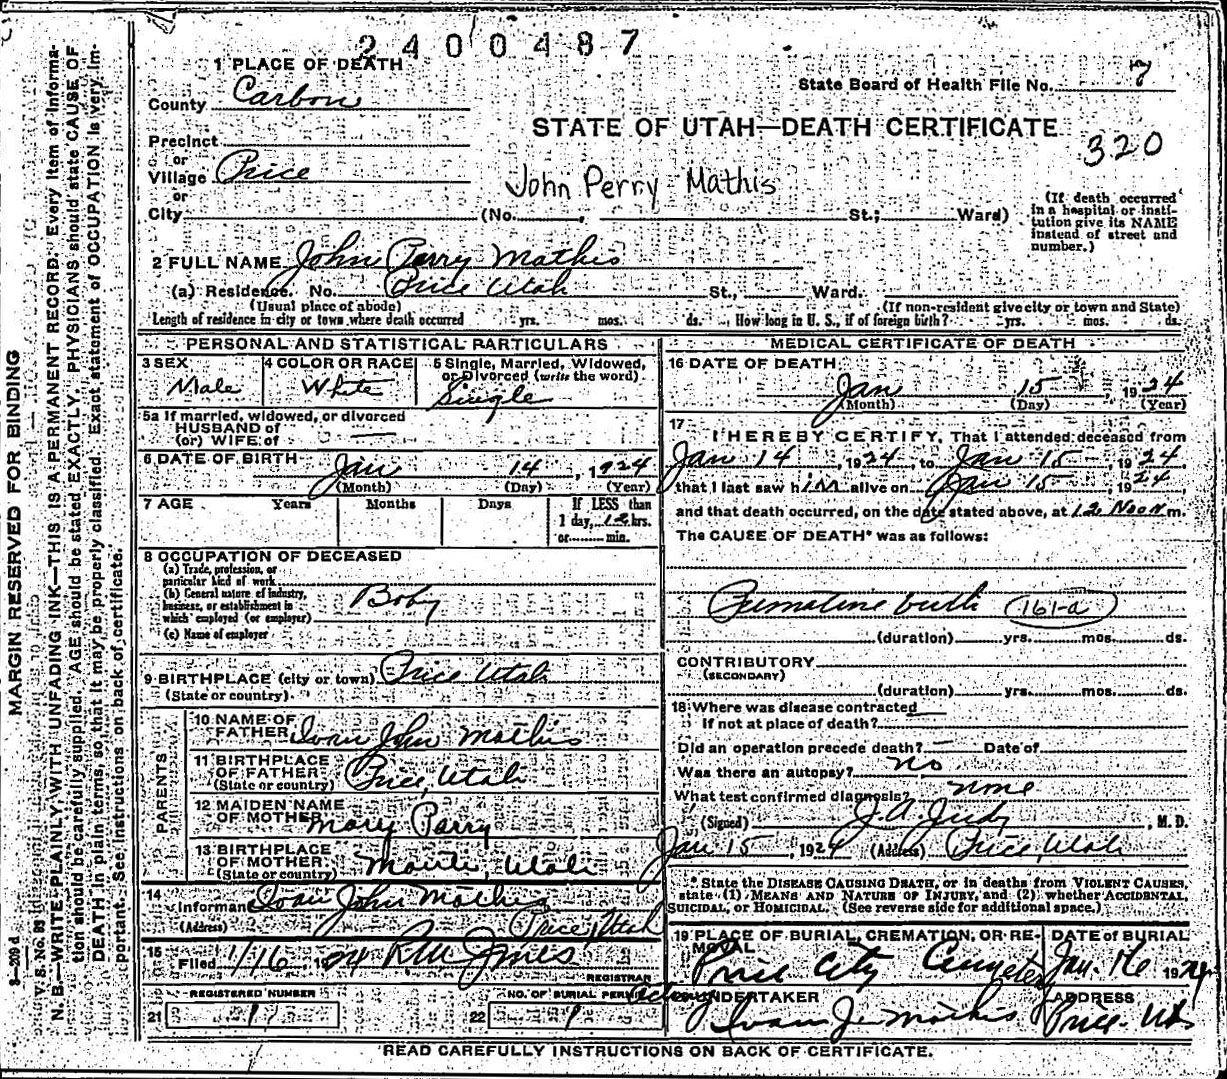 2400487
1 PLACE OF DEATH
State Board of Health File No. 7
County Carbon
STATE OF UTAH—DEATH CERTIFICATE
320
Precinct
or
Village Price
John Perry Mathis
or
City (No. , St.; Ward)
(If death occurred in a hospital or institution give its NAME instead of street and number.)
2 FULL NAME John Parry Mathis
(a) Residence. No. Price Utah St., Ward.
(Usual place of abode) (If non-resident give city or town and State)
Length of residence in city or town where death occurred yrs. mos. ds. How long in U. S., if of foreign birth? yrs. mos. ds.
PERSONAL AND STATISTICAL PARTICULARS
3 SEX Male
4 COLOR OR RACE White
5 Single, Married, Widowed, or Divorced (write the word) Single
5a If married, widowed, or divorced
HUSBAND of
(or) WIFE of —
6 DATE OF BIRTH Jan 14, 1924
(Month) (Day) (Year)
7 AGE Years Months Days If LESS than
1 day, 12 hrs.
or min.
8 OCCUPATION OF DECEASED
(a) Trade, profession, or
particular kind of work
(b) General nature of industry,
business, or establishment in
which employed (or employer) Baby
(c) Name of employer
9 BIRTHPLACE (city or town) Price Utah
(State or country)
PARENTS
10 NAME OF FATHER Ivan John Mathis
11 BIRTHPLACE OF FATHER Price, Utah
(State or country)
12 MAIDEN NAME OF MOTHER Mary Parry
13 BIRTHPLACE OF MOTHER Manti, Utah
(State or country)
14 Informant Ivan John Mathis
(Address) Price, Utah
15 Filed 1/16, 1924
REGISTRAR
REGISTERED NUMBER
21 1
NO. OF BURIAL PERMIT
22 1
MEDICAL CERTIFICATE OF DEATH
16 DATE OF DEATH
Jan 15, 1924
(Month) (Day) (Year)
17 I HEREBY CERTIFY, That I attended deceased from
Jan 14, 1924, to Jan 15, 1924
that I last saw him alive on Jan 15, 1924,
and that death occurred, on the date stated above, at 12 Noon m.
The CAUSE OF DEATH* was as follows:
Premature birth (161-a)
(duration) yrs. mos. ds.
CONTRIBUTORY
(SECONDARY)
(duration) yrs. mos. ds.
18 Where was disease contracted —
if not at place of death?
Did an operation precede death? — Date of
Was there an autopsy? no
What test confirmed diagnosis? none
(Signed) J A Judy, M. D.
Jan 15, 1924 (Address) Price, Utah
* State the DISEASE CAUSING DEATH, or in deaths from VIOLENT CAUSES,
state (1) MEANS AND NATURE OF INJURY, and (2) whether ACCIDENTAL,
SUICIDAL, or HOMICIDAL. (See reverse side for additional space.)
19 PLACE OF BURIAL, CREMATION, OR REMOVAL DATE OF BURIAL
Price City Cemetery Jan. 16 1924
UNDERTAKER ADDRESS
Ivan J. Mathis Price. Utah
READ CAREFULLY INSTRUCTIONS ON BACK OF CERTIFICATE.
MARGIN RESERVED FOR BINDING
V. S. No. 89
N. B.—WRITE PLAINLY, WITH UNFADING INK—THIS IS A PERMANENT RECORD. Every item of informa-
tion should be carefully supplied. AGE should be stated EXACTLY. PHYSICIANS should state CAUSE OF
DEATH in plain terms, so that it may be properly classified. Exact statement of OCCUPATION is very im-
portant. See instructions on back of certificate.